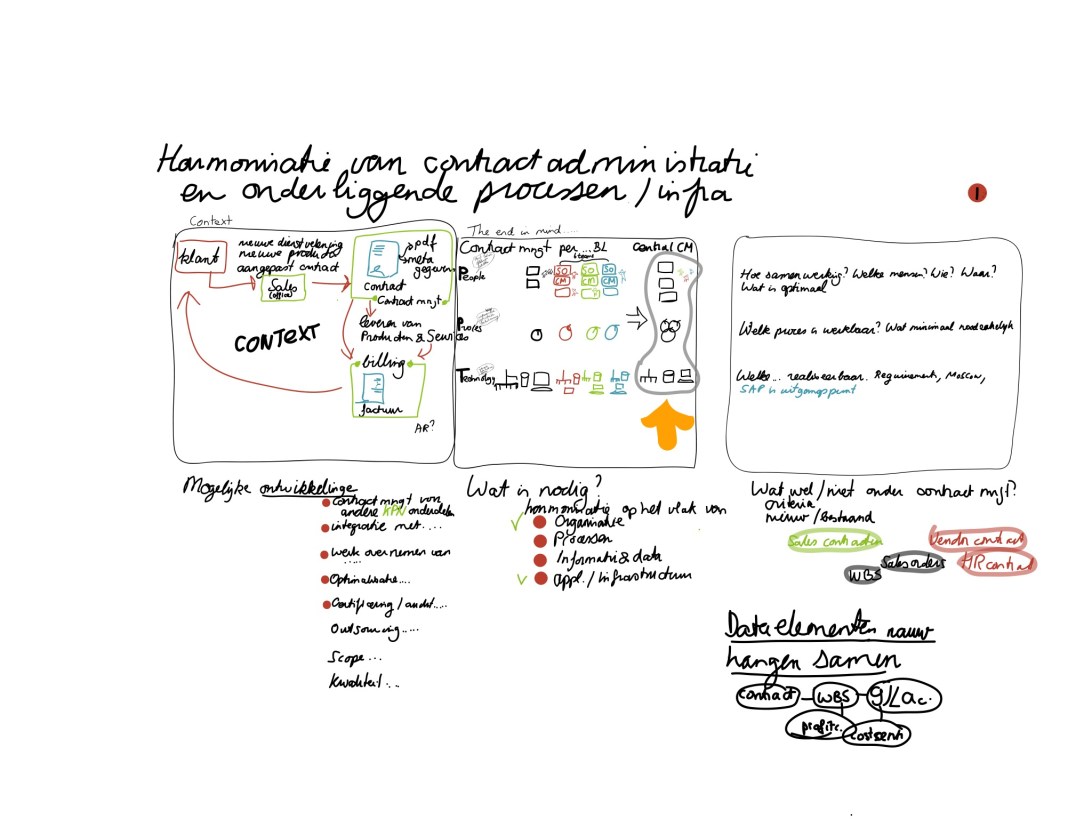 Harmonisatie van contractadministratie
en onderliggende processen / infra
1
Context
klant
nieuwe dienstverlening
nieuwe producten
aangepast contract
Sales
(office)
pdf
meta
gegevens
contract
Contract mngt
leveren van
Producten & Services
CONTEXT
billing
factuur
AR?
The end in mind.....
Contract mngt per ... BL
Central CM
People
SO SO SO
CM CM CM
Proces
Technology
Hoe samenwerking? Welke mensen? Wie? Waar?
Wat is optimaal
Welk proces is werkbaar? Wat minimaal noodzakelijk
Welke... realiseerbaar. Requirement, Moscow,
SAP is uitgangspunt
Mogelijke ontwikkelinge
Contract mngt van
andere KPN onderdelen
integratie met....
Werk overnemen van
.....
Optimalisatie....
Certificering / audit....
Outsourcing.....
Scope...
Kwaliteit...
Wat is nodig?
harmonisatie op het vlak van
Organisatie
Processen
Informatie & data
appl. / infrastructuur
Wat wel / niet onder contract mngt?
criteria
nieuw / bestaand
Sales contracten
Vendor contract
Sales orders
HR contract
WBS
Data elementen nauw
hangen samen
contract
WBS
g/L ac.
profitc.